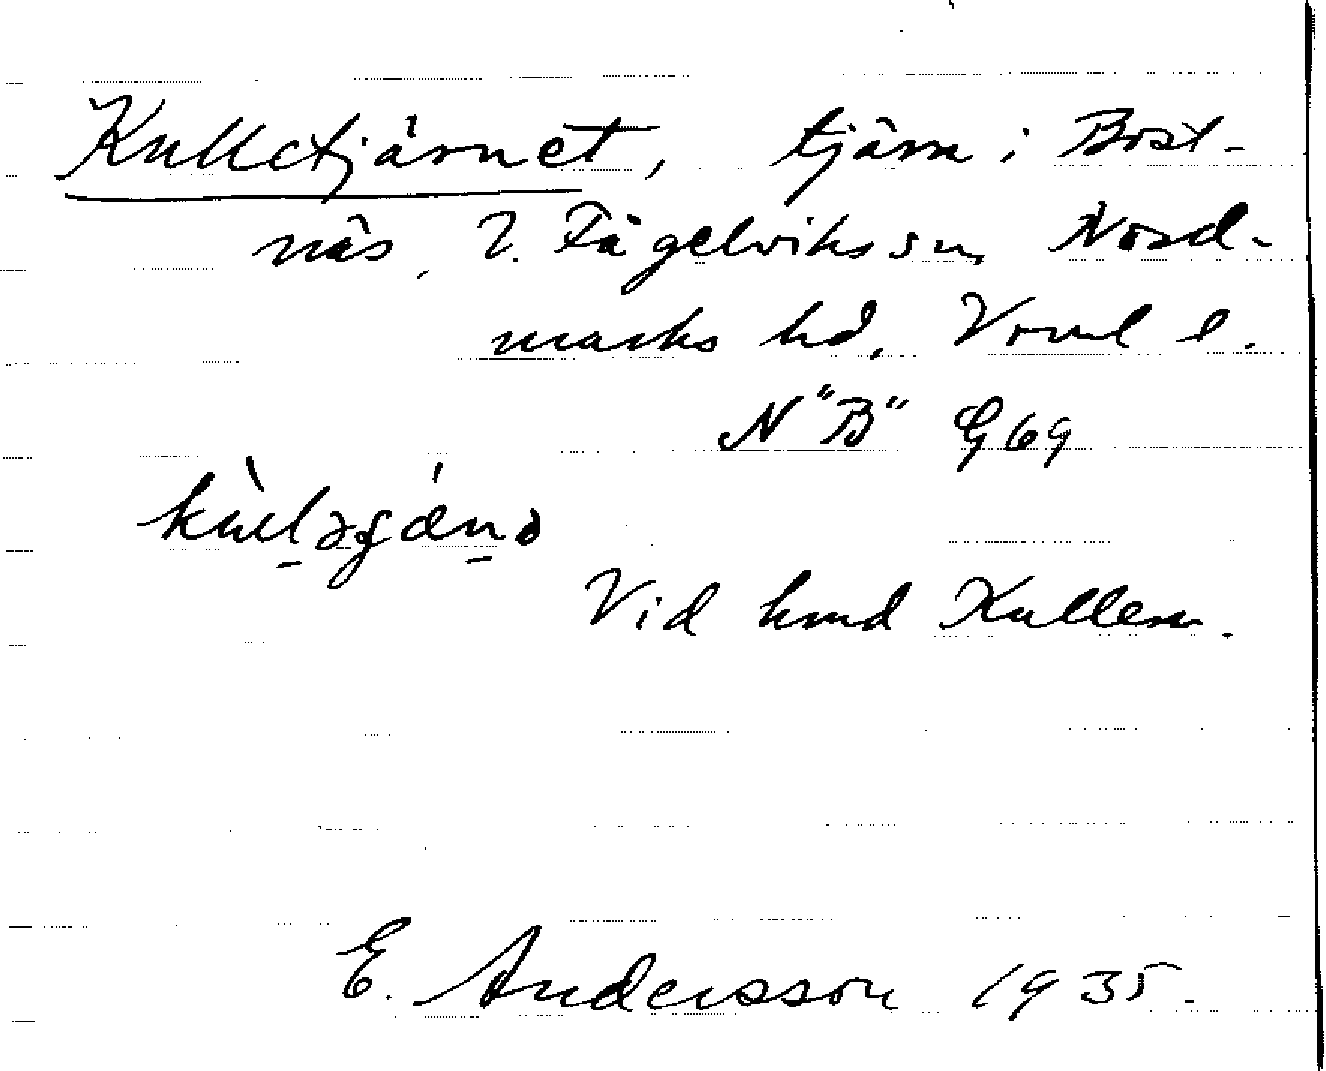 Kulletjärnet, tjärn i Bost-
näs, V. Fågelviks sn, Nord-
marks hd, Vrml l.
N "B" G 69
Vid hmd Kullen.
E. Andersson 1935.